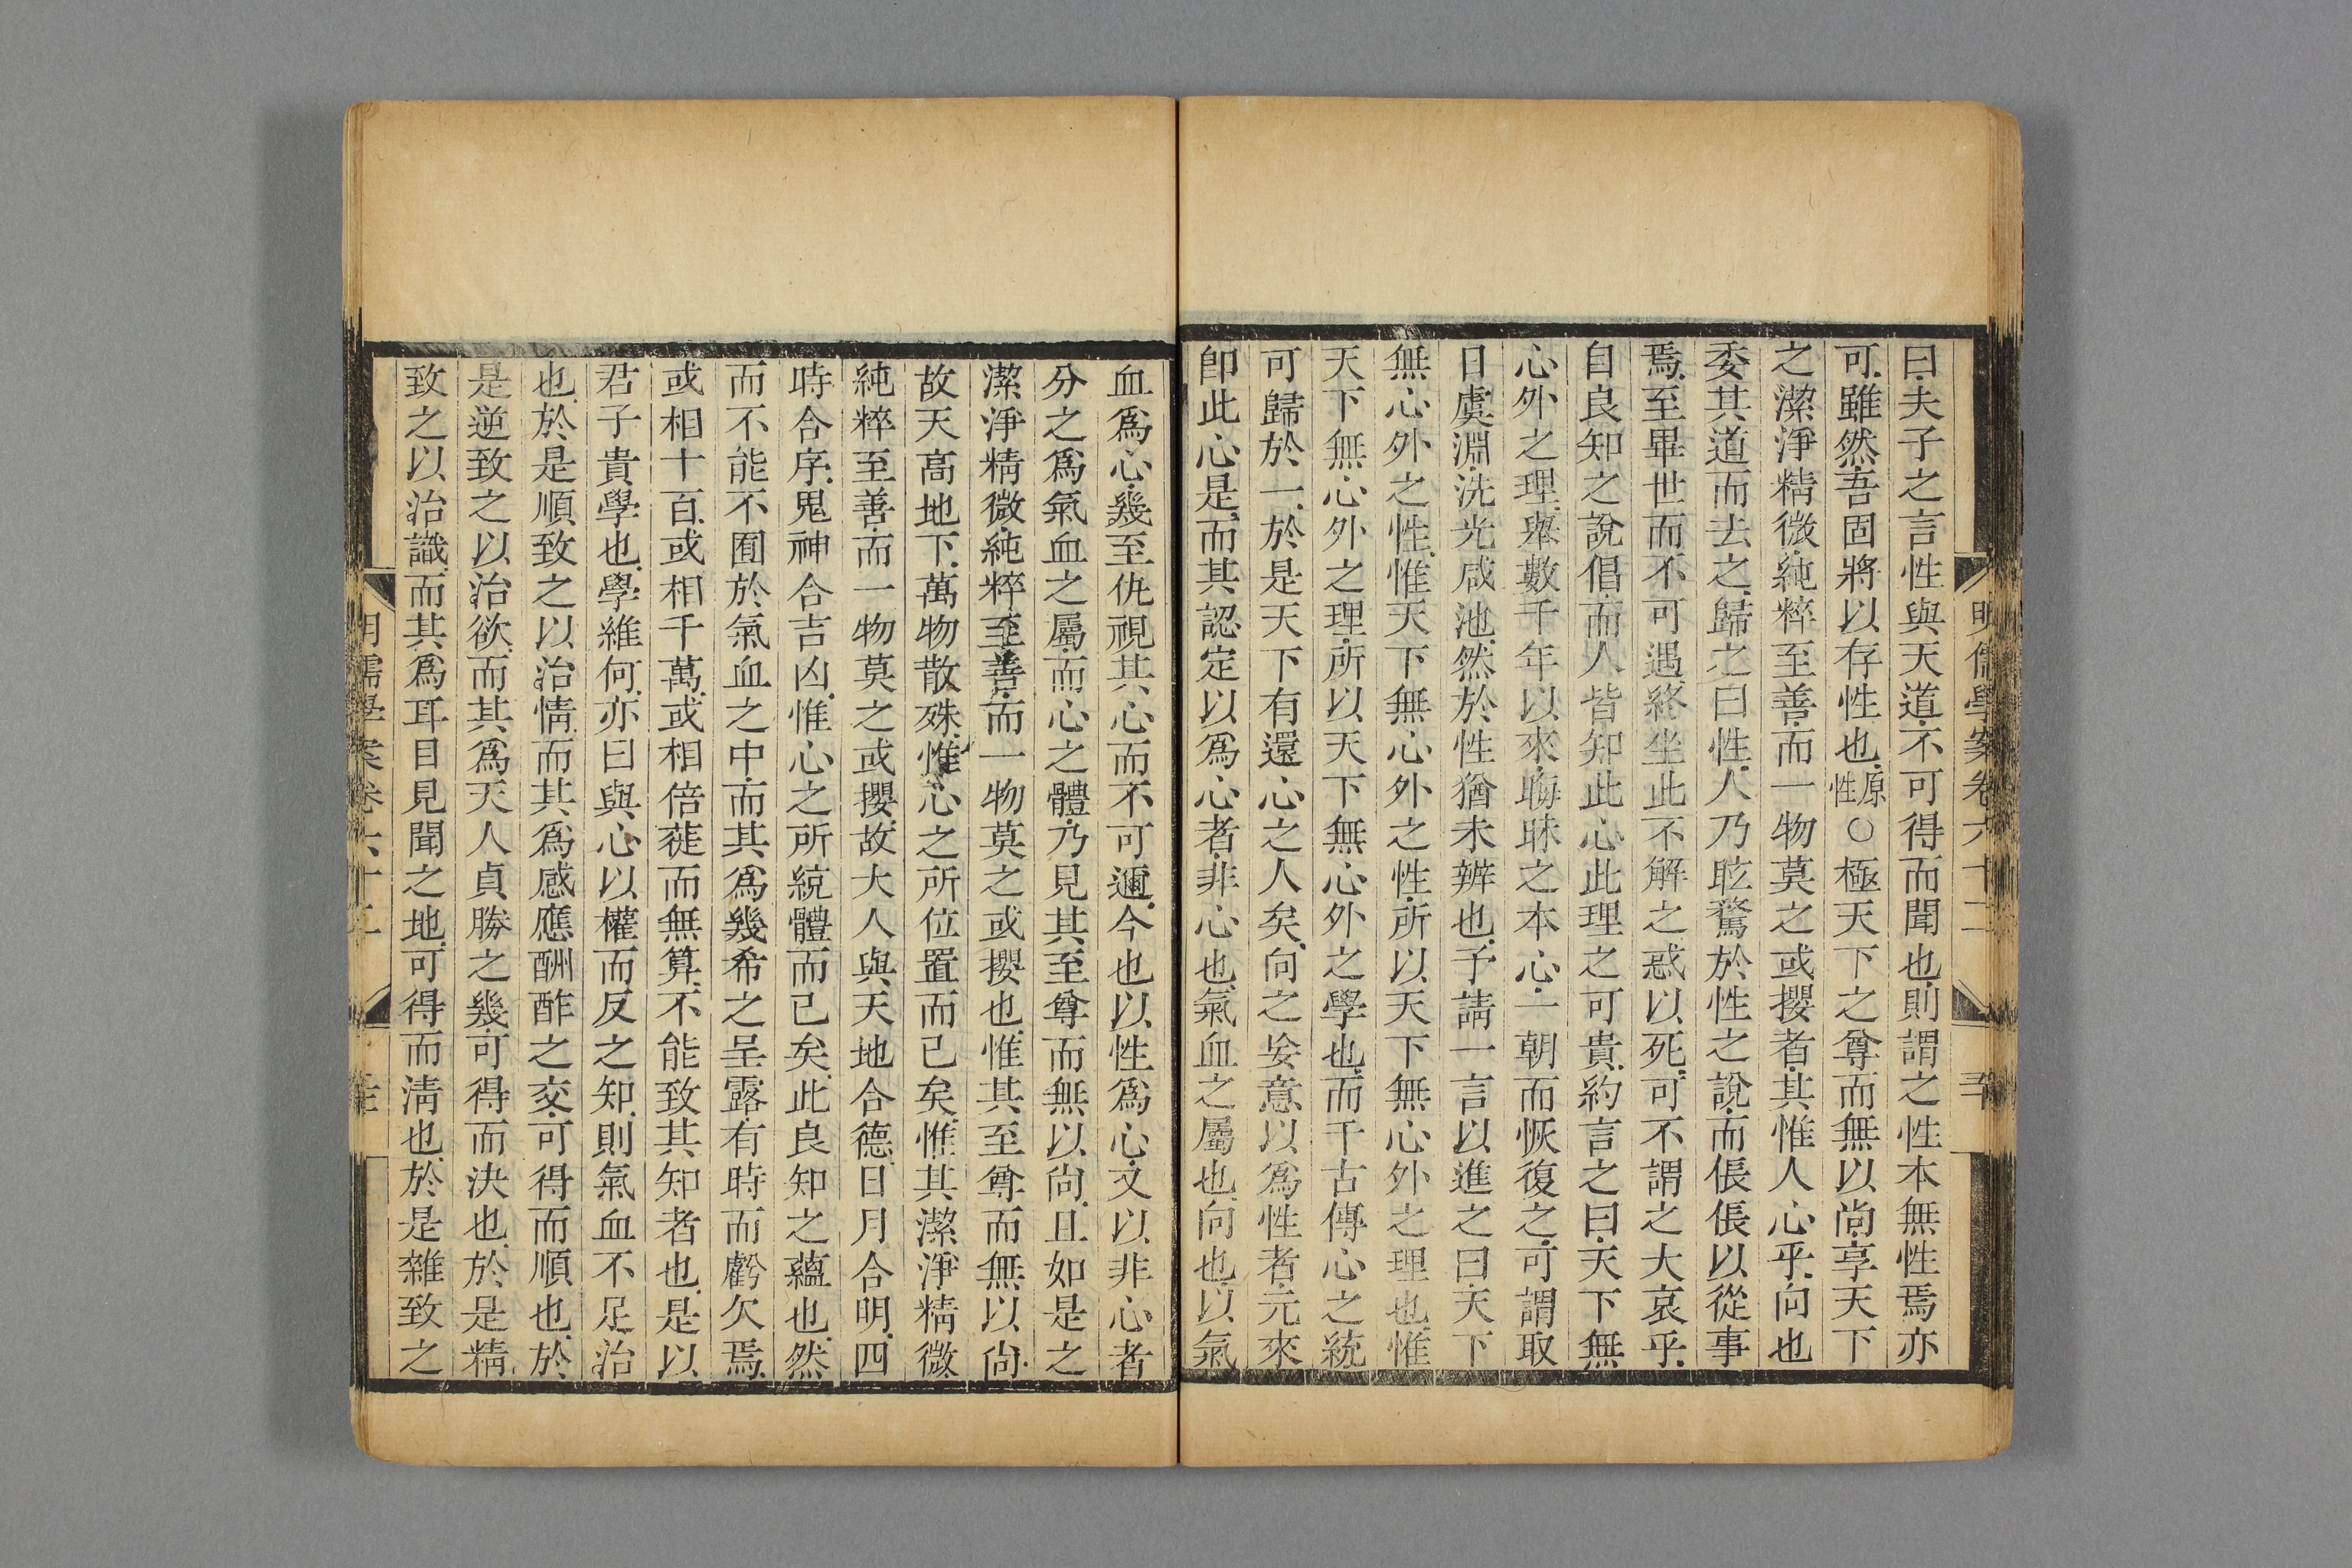 明儒學案卷六十二
曰夫子之言性與天道不可得而聞也則謂之性本無性焉亦
可雖然吾固將以存性也原性○極天下之尊而無以尚享天下
之潔淨精微純粹至善而一物莫之或攖者其惟人心乎向也
委其道而去之歸之曰性人乃眩鶩於性之說而倀倀以從事
焉至畢世而不可遇終坐此不解之惑以死可不謂之大哀乎
自良知之說倡而人皆知此心此理之可貴約言之曰天下無
心外之理舉數千年以來晦昧之本心一朝而恢復之可謂取
日虞淵洗光咸池然於性猶未辨也予請一言以進之曰天下
無心外之性惟天下無心外之性所以天下無心外之理也惟
天下無心外之理所以天下無心外之學也而千古傳心之統
可歸於一於是天下有還心之人矣向之妄意以爲性者元來
卽此心是而其認定以爲心者非心也氣血之屬也向也以氣
血爲心幾至仇視其心而不可邇今也以性爲心又以非心者
分之爲氣血之屬而心之體乃見其至尊而無以尚且如是之
潔淨精微純粹至善而一物莫之或攖也惟其至尊而無以尚
故天高地下萬物散殊惟心之所位置而已矣惟其潔淨精微
純粹至善而一物莫之或攖故大人與天地合德日月合明四
時合序鬼神合吉凶惟心之所統體而已矣此良知之蘊也然
而不能不囿於氣血之中而其爲幾希之呈露有時而虧欠焉
或相十百或相千萬或相倍蓰而無算不能致其知者也是以
君子貴學也學維何亦曰與心以權而反之知則氣血不足治
也於是順致之以治情而其爲感應酬酢之交可得而順也於
是逆致之以治欲而其爲天人貞勝之幾可得而決也於是精
致之以治識而其爲耳目見聞之地可得而淸也於是雜致之
明儒學案卷六十二